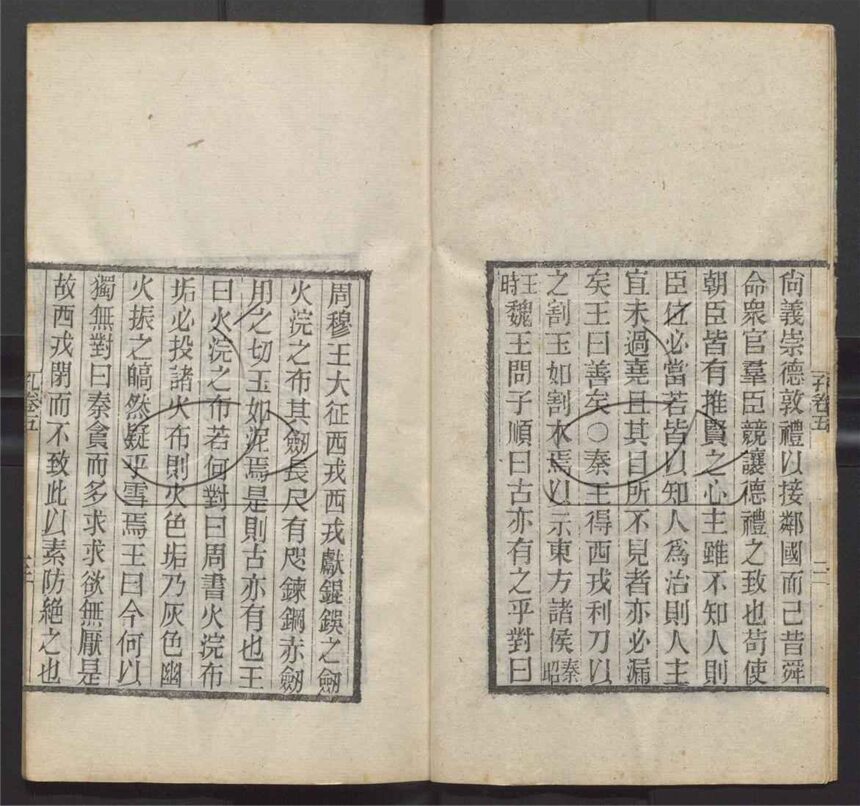 尙義崇德敦禮以接鄰國而已昔舜
命衆官羣臣競讓德禮之致也苟使
朝臣皆有推賢之心主雖不知人則
臣位必當若皆以知人爲治則人主
宜未過堯且其目所不見者亦必漏
矣王曰善矣〇秦王得西戎利刀以
之割玉如割水焉以示東方諸侯秦昭
王時魏王問子順曰古亦有之乎對曰
孔卷五
二
周穆王大征西戎西戎獻錕鋙之劒
火浣之布其劒長尺有咫鍊鋼赤劒
用之切玉如泥焉是則古亦有也王
曰火浣之布若何對曰周書火浣布
垢必投諸火布則火色垢乃灰色出
火振之皜然疑乎雪焉王曰今何以
獨無對曰秦貪而多求求欲無厭是
故西戎閉而不致此以素防絕之也
孔卷五